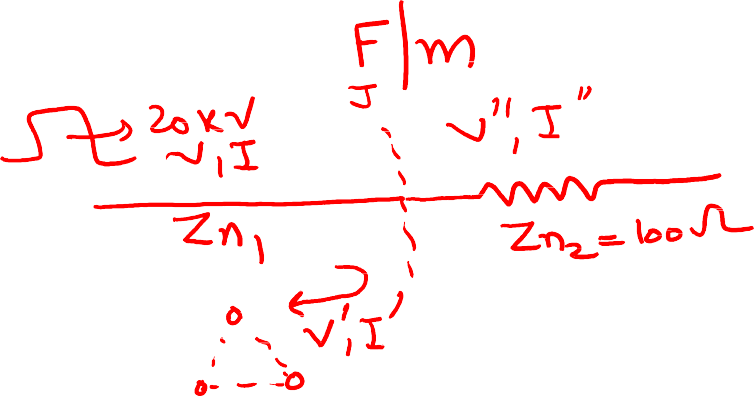 F/m
J
20kV
V, I
V'', I''
Zn1
Zn2 = 100Ω
V', I'